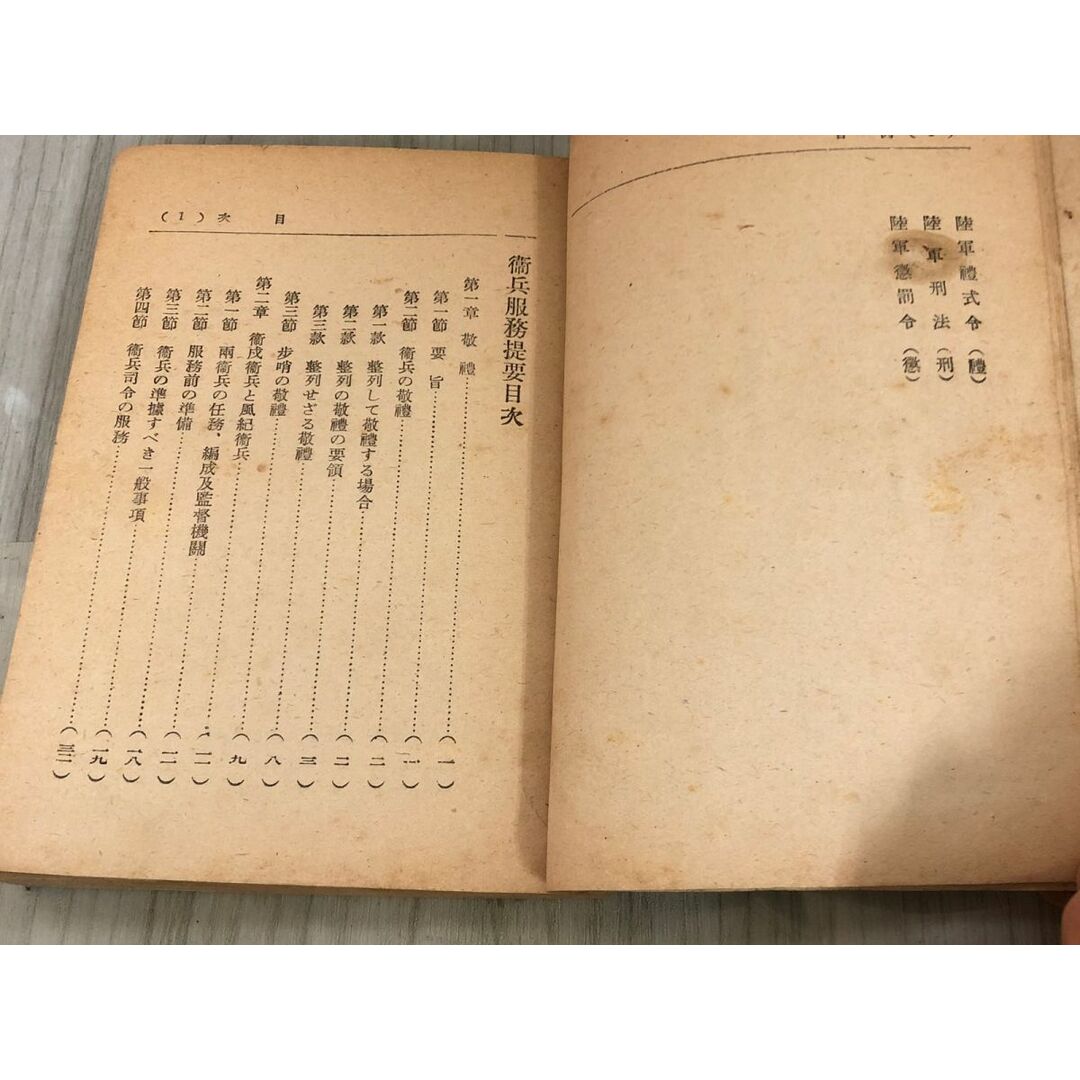 陸軍禮式令(禮)
陸軍刑法(刑)
陸軍懲罰令(懲)
目次(1)
衞兵服務提要目次
第一章 敬禮……(一)
第一節 要旨……(一)
第二節 衞兵の敬禮……(二)
第一款 整列して敬禮する場合……(二)
第二款 整列の敬禮の要領……(三)
第三款 整列せざる敬禮……(八)
第三節 步哨の敬禮……(九)
第二章 衞戍衞兵と風紀衞兵……(一一)
第一節 兩衞兵の任務、編成及監督機關……(一一)
第二節 服務前の準備……(一八)
第三節 衞兵の準據すべき一般事項……(一九)
第四節 衞兵司令の服務……(三二)